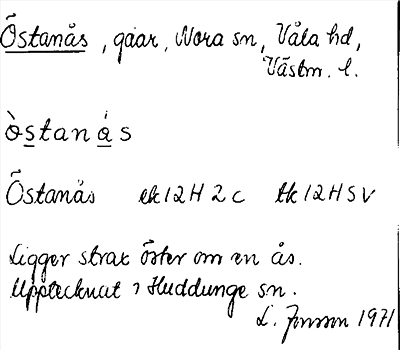 Östanås, gåar, Nora sn, Våla hd,
Västm. l.
òstanás
Östanås ek 12H 2c tk 12H SV
Ligger strax öster om en ås.
Upptecknat i Huddunge sn.
L. Jonsson 1971